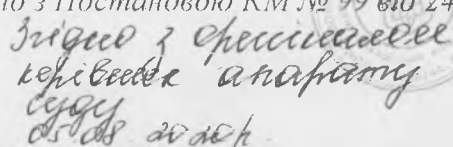 но з Постановою КМ № 99 від 24
Згідно з оригіналом
керівник апарату
суду
05.08.2020р.